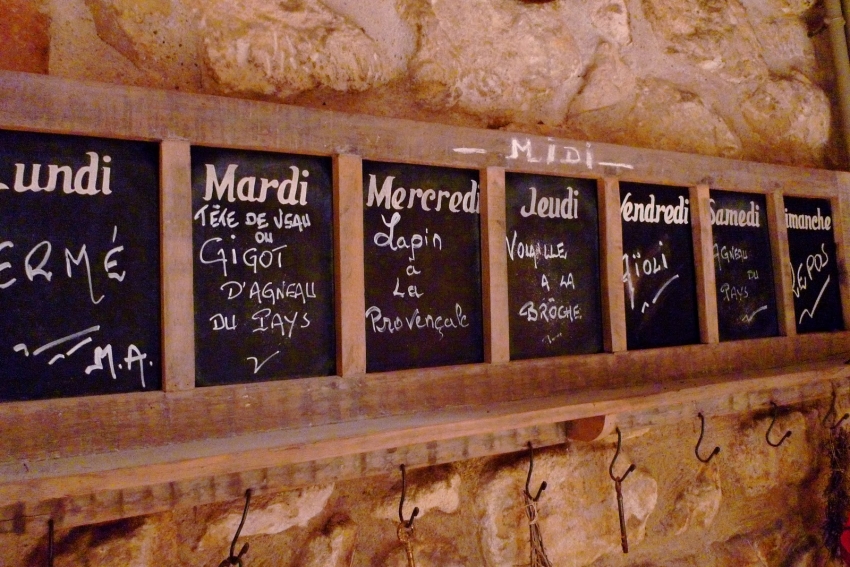 MIDI
Lundi
ERMÉ
M.A.
Mardi
TÊTE DE VEAU
OU
GIGOT
D'AGNEAU
DU PAYS
Mercredi
Lapin
à
La
Provençale
Jeudi
VOLAILLE
A LA
BRÖCHE
Vendredi
AÏOLI
Samedi
AGNEAU
DU
PAYS
imanche
REPOS